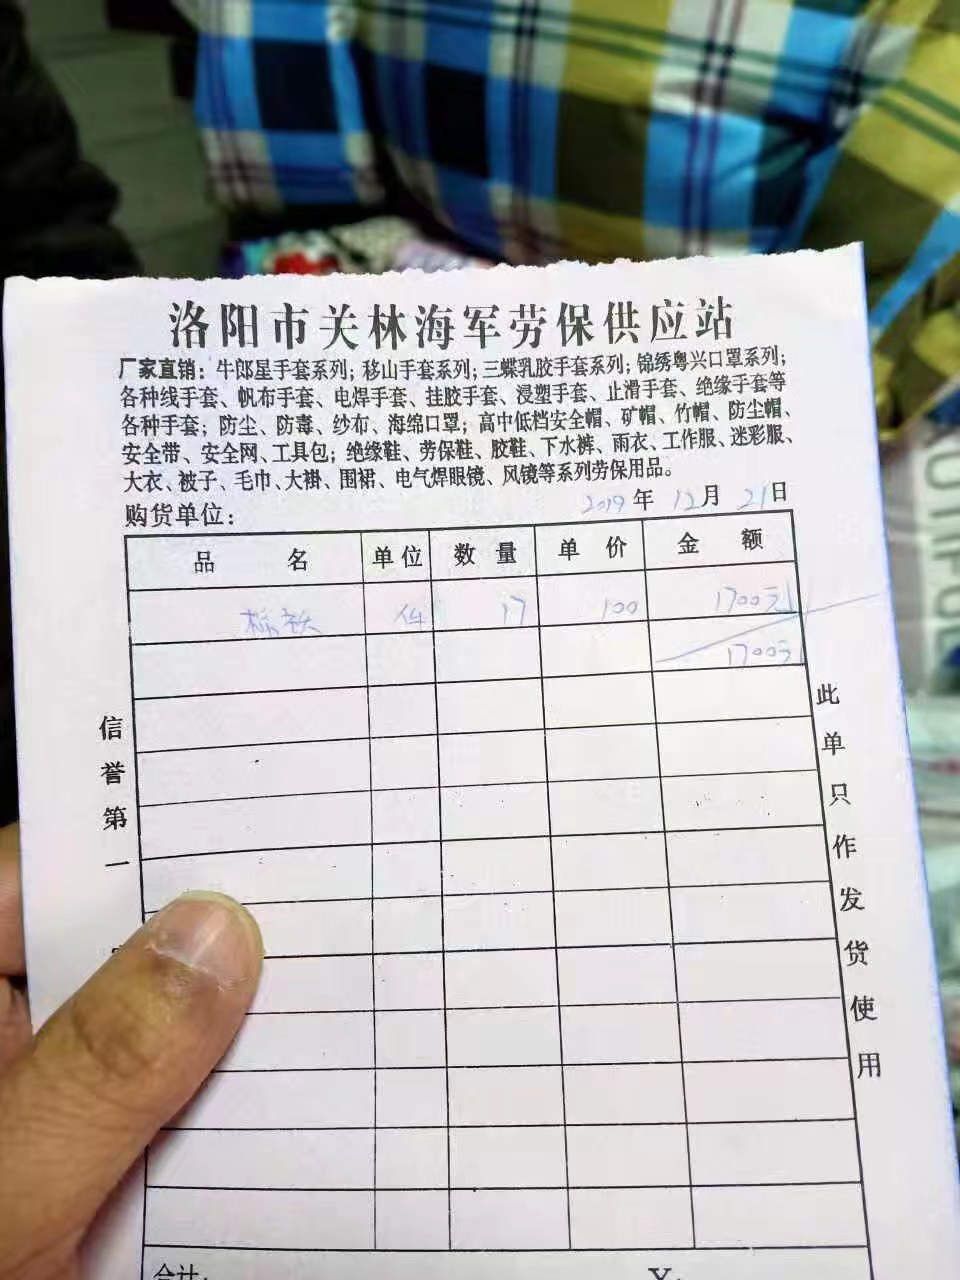 洛阳市关林海军劳保供应站
厂家直销：牛郎星手套系列；移山手套系列；三蝶乳胶手套系列；锦绣粤兴口罩系列；
各种线手套、帆布手套、电焊手套、挂胶手套、浸塑手套、止滑手套、绝缘手套等
各种手套；防尘、防毒、纱布、海绵口罩；高中低档安全帽、矿帽、竹帽、防尘帽、
安全带、安全网、工具包；绝缘鞋、劳保鞋、胶鞋、下水裤、雨衣、工作服、迷彩服、
大衣、被子、毛巾、大褂、围裙、电气焊眼镜、风镜等系列劳保用品。
2019年 12月 21日
购货单位：
品 名 单位 数量 单价 金额
件 17 100 1700元
1700元
信誉第一
此单只作发货使用
合计： ¥：